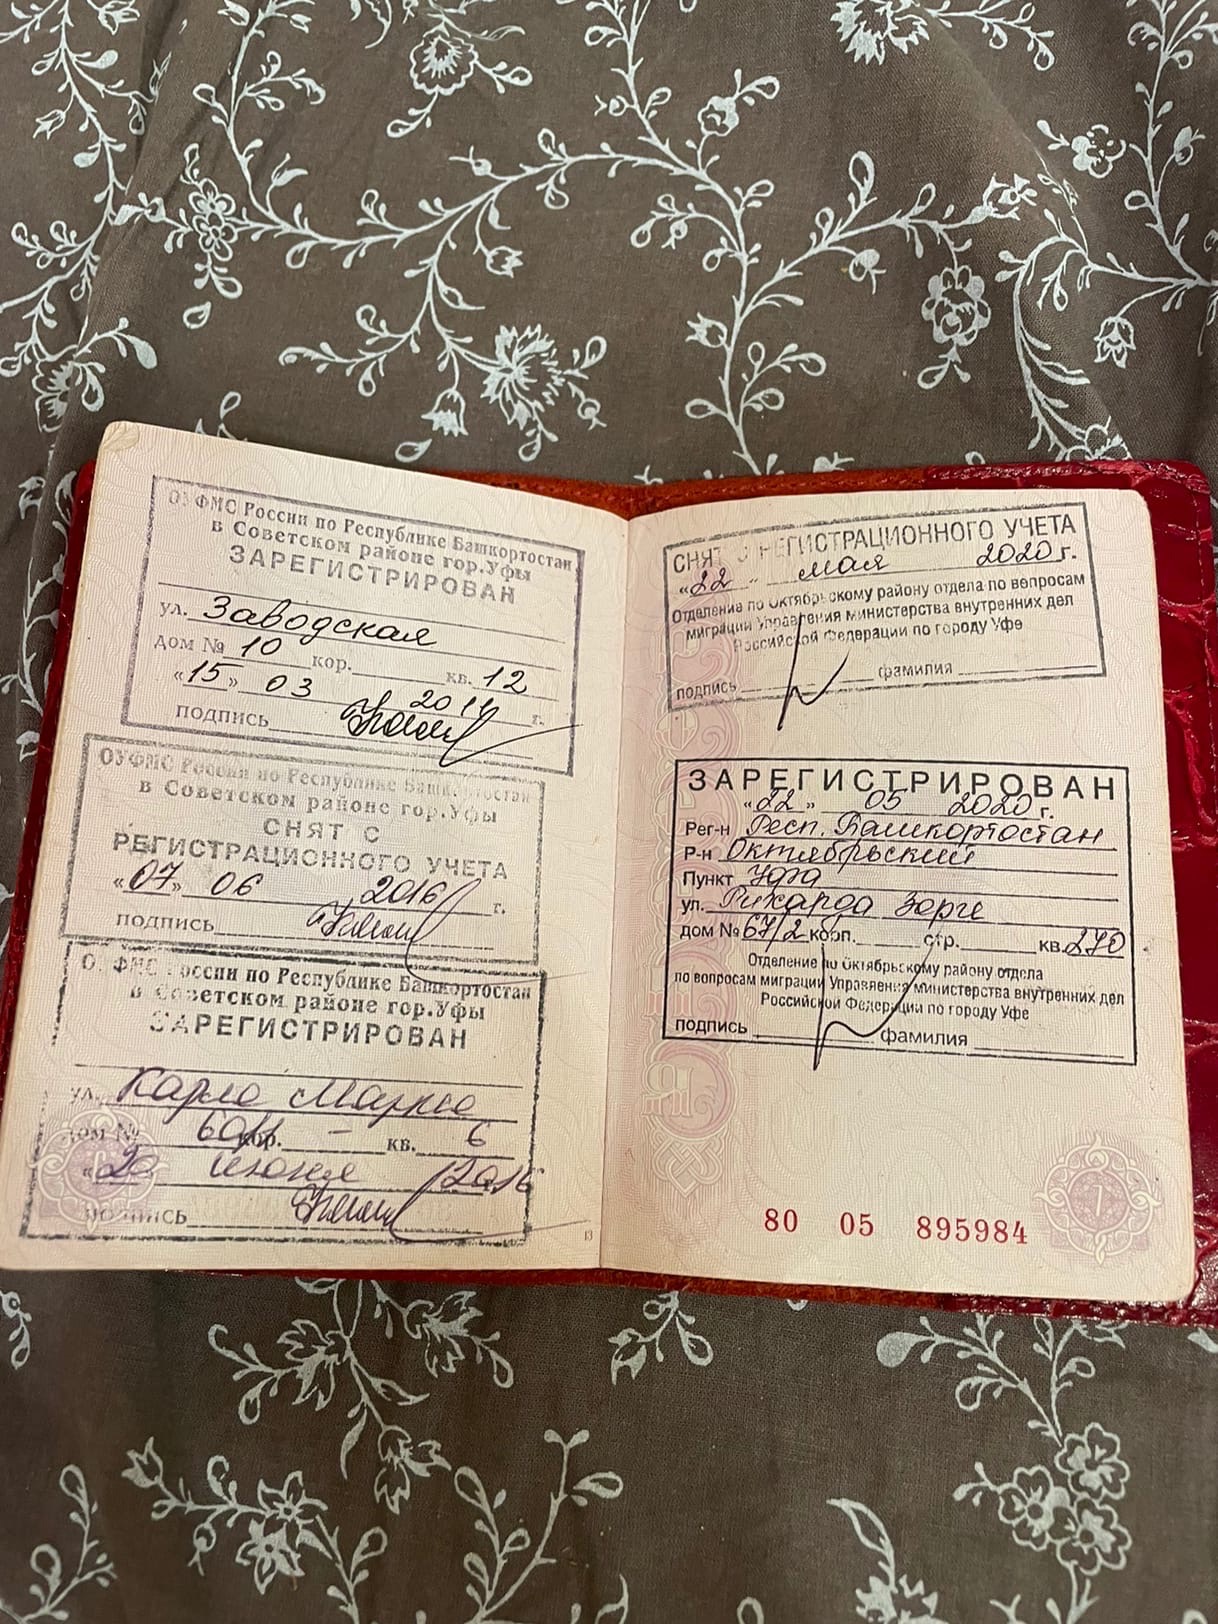 ОУФМС России по Республике Башкортостан
в Советском районе гор.Уфы
ЗАРЕГИСТРИРОВАН
ул. Заводская
дом № 10 кор. кв. 12
«15» 03 2011 г.
подпись
ОУФМС России по Республике Башкортостан
в Советском районе гор.Уфы
СНЯТ С
РЕГИСТРАЦИОННОГО УЧЕТА
«07» 06 2016 г.
подпись
ОУФМС России по Республике Башкортостан
в Советском районе гор.Уфы
ЗАРЕГИСТРИРОВАН
ул. Карла Маркса
дом № 60/1 кор. – кв. 6
«20» июня 2016
подпись
13
СНЯТ С РЕГИСТРАЦИОННОГО УЧЕТА
«22» мая 2020 г.
Отделение по Октябрьскому району отдела по вопросам
миграции Управления министерства внутренних дел
Российской Федерации по городу Уфе
подпись фамилия
ЗАРЕГИСТРИРОВАН
«22» 05 2020 г.
Рег-н Респ. Башкортостан
Р-н Октябрьский
Пункт Уфа
ул. Рихарда Зорге
дом № 67/2 корп. стр. кв. 270
Отделение по Октябрьскому району отдела
по вопросам миграции Управления министерства внутренних дел
Российской Федерации по городу Уфе
подпись фамилия
80 05 895984